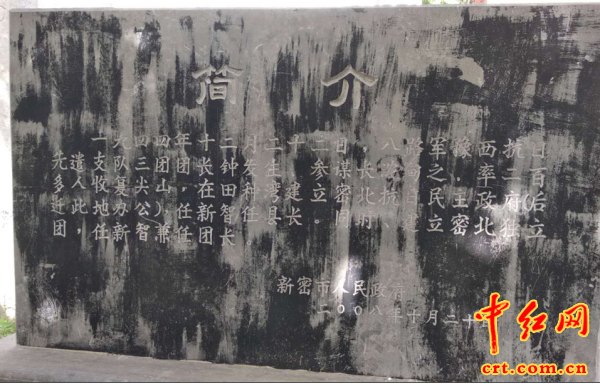 简介
一九四四年十二月二十二日，八路军豫西抗日
先遣支队三团团长钟发生参谋长 司之率二百
多人收 尖山，在田种湾建立密北抗日民主政府(后
迁此地办公)任 智任县长。同 、建立密北 立
团，任新智兼任团长
新密市人民政府
二〇〇八年十月二十
中红网
crt.com.cn